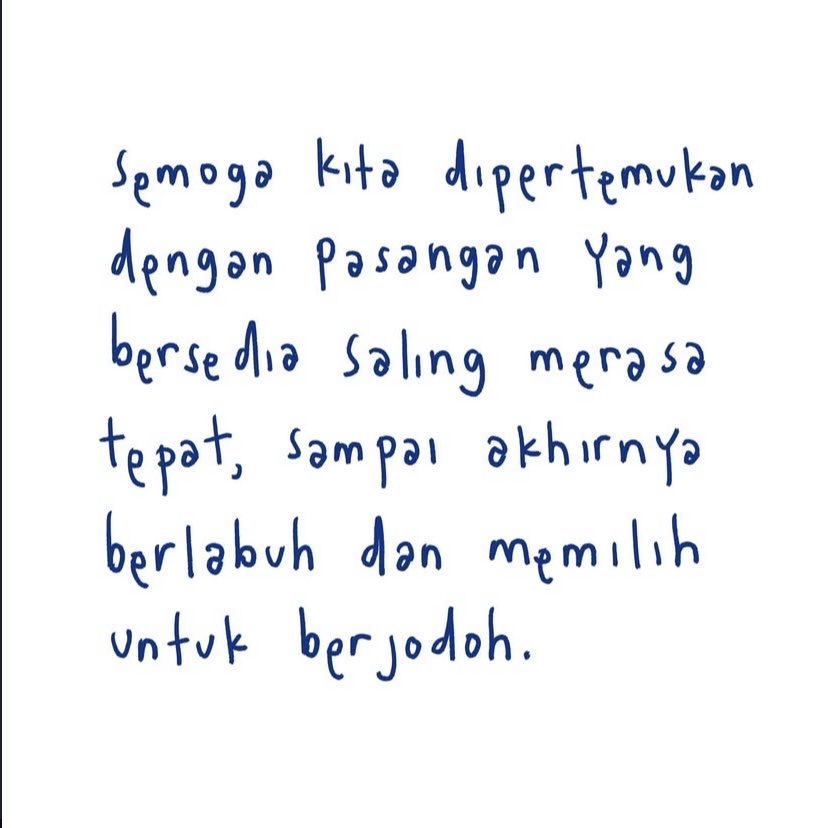 Semoga kita dipertemukan
dengan pasangan yang
bersedia saling merasa
tepat, sampai akhirnya
berlabuh dan memilih
untuk berjodoh.